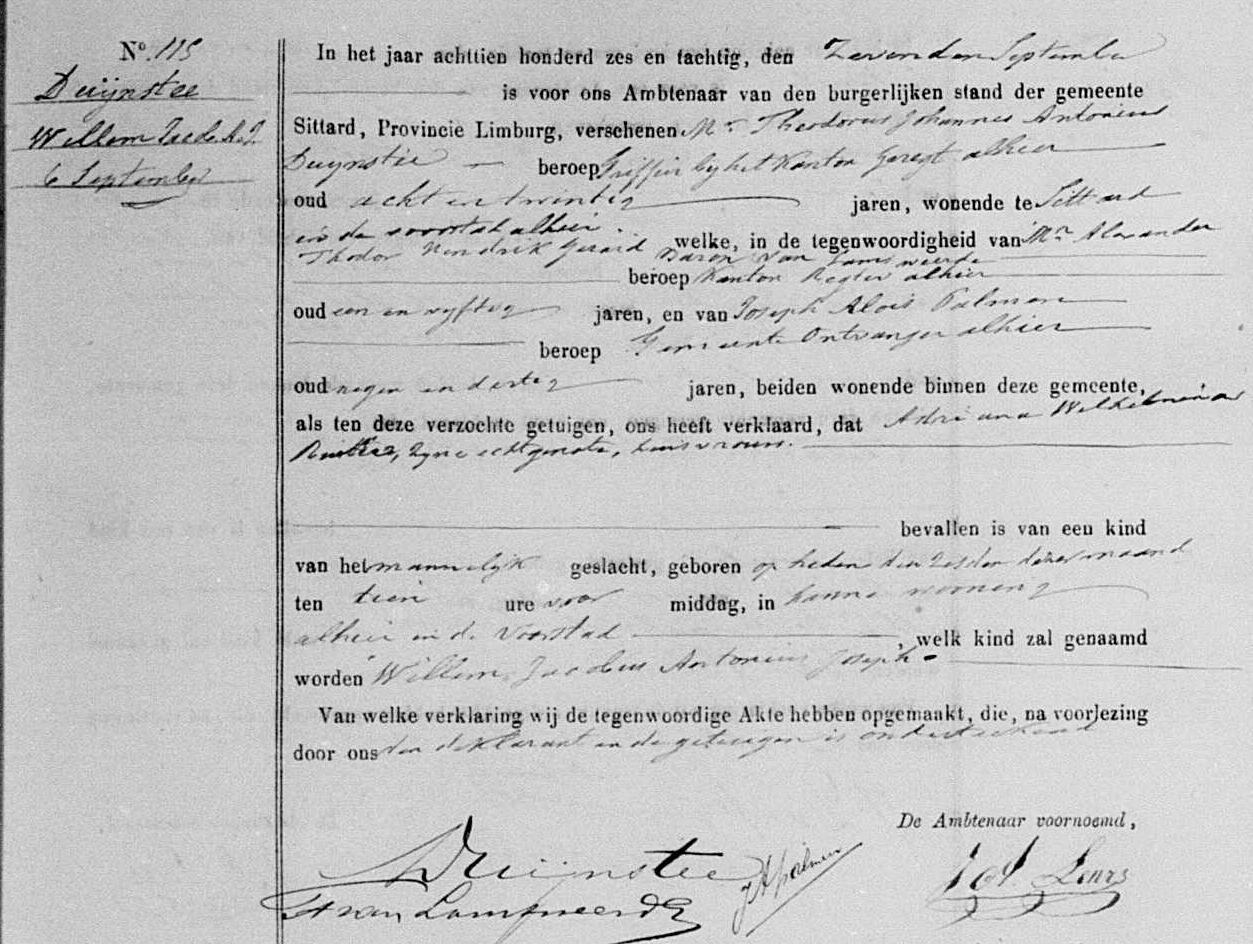 No. 115
Duijnstee
Willem Jac. A. J.
6 September
In het jaar achttien honderd zes en tachtig, den Zevenden September
is voor ons Ambtenaar van den burgerlijken stand der gemeente
Sittard, Provincie Limburg, verschenen Mr Theodorus Johannes Antonius
Duynstee beroep Griffier by het Kanton Geregt alhier
oud acht en twintig jaren, wonende te Sittard
in de voorstad alhier. welke, in de tegenwoordigheid van Mr Alexander
Theodor Hendrik Gerard Baron van Lamsweerde
beroep Kanton Regter alhier
oud een en vyftig jaren, en van Joseph Alois Palmen
beroep Gemeente Ontvanger alhier
oud negen en dertig jaren, beiden wonende binnen deze gemeente,
als ten deze verzochte getuigen, ons heeft verklaard, dat Adriana Wilhelmina
zyne echtgenote, huisvrouw.
bevallen is van een kind
van het mannelyk geslacht, geboren op heden den zesden dezer maand
ten tien ure voor middag, in hunne wooning
alhier in de Voorstad, welk kind zal genaamd
worden Willem Jacobus Antonius Joseph.
Van welke verklaring wij de tegenwoordige Akte hebben opgemaakt, die, na voorlezing
door ons den deklarant en de getuigen is onderteekend
De Ambtenaar voornoemd,
Duijnstee
van Lamsweerde
JAPalmen
Leurs